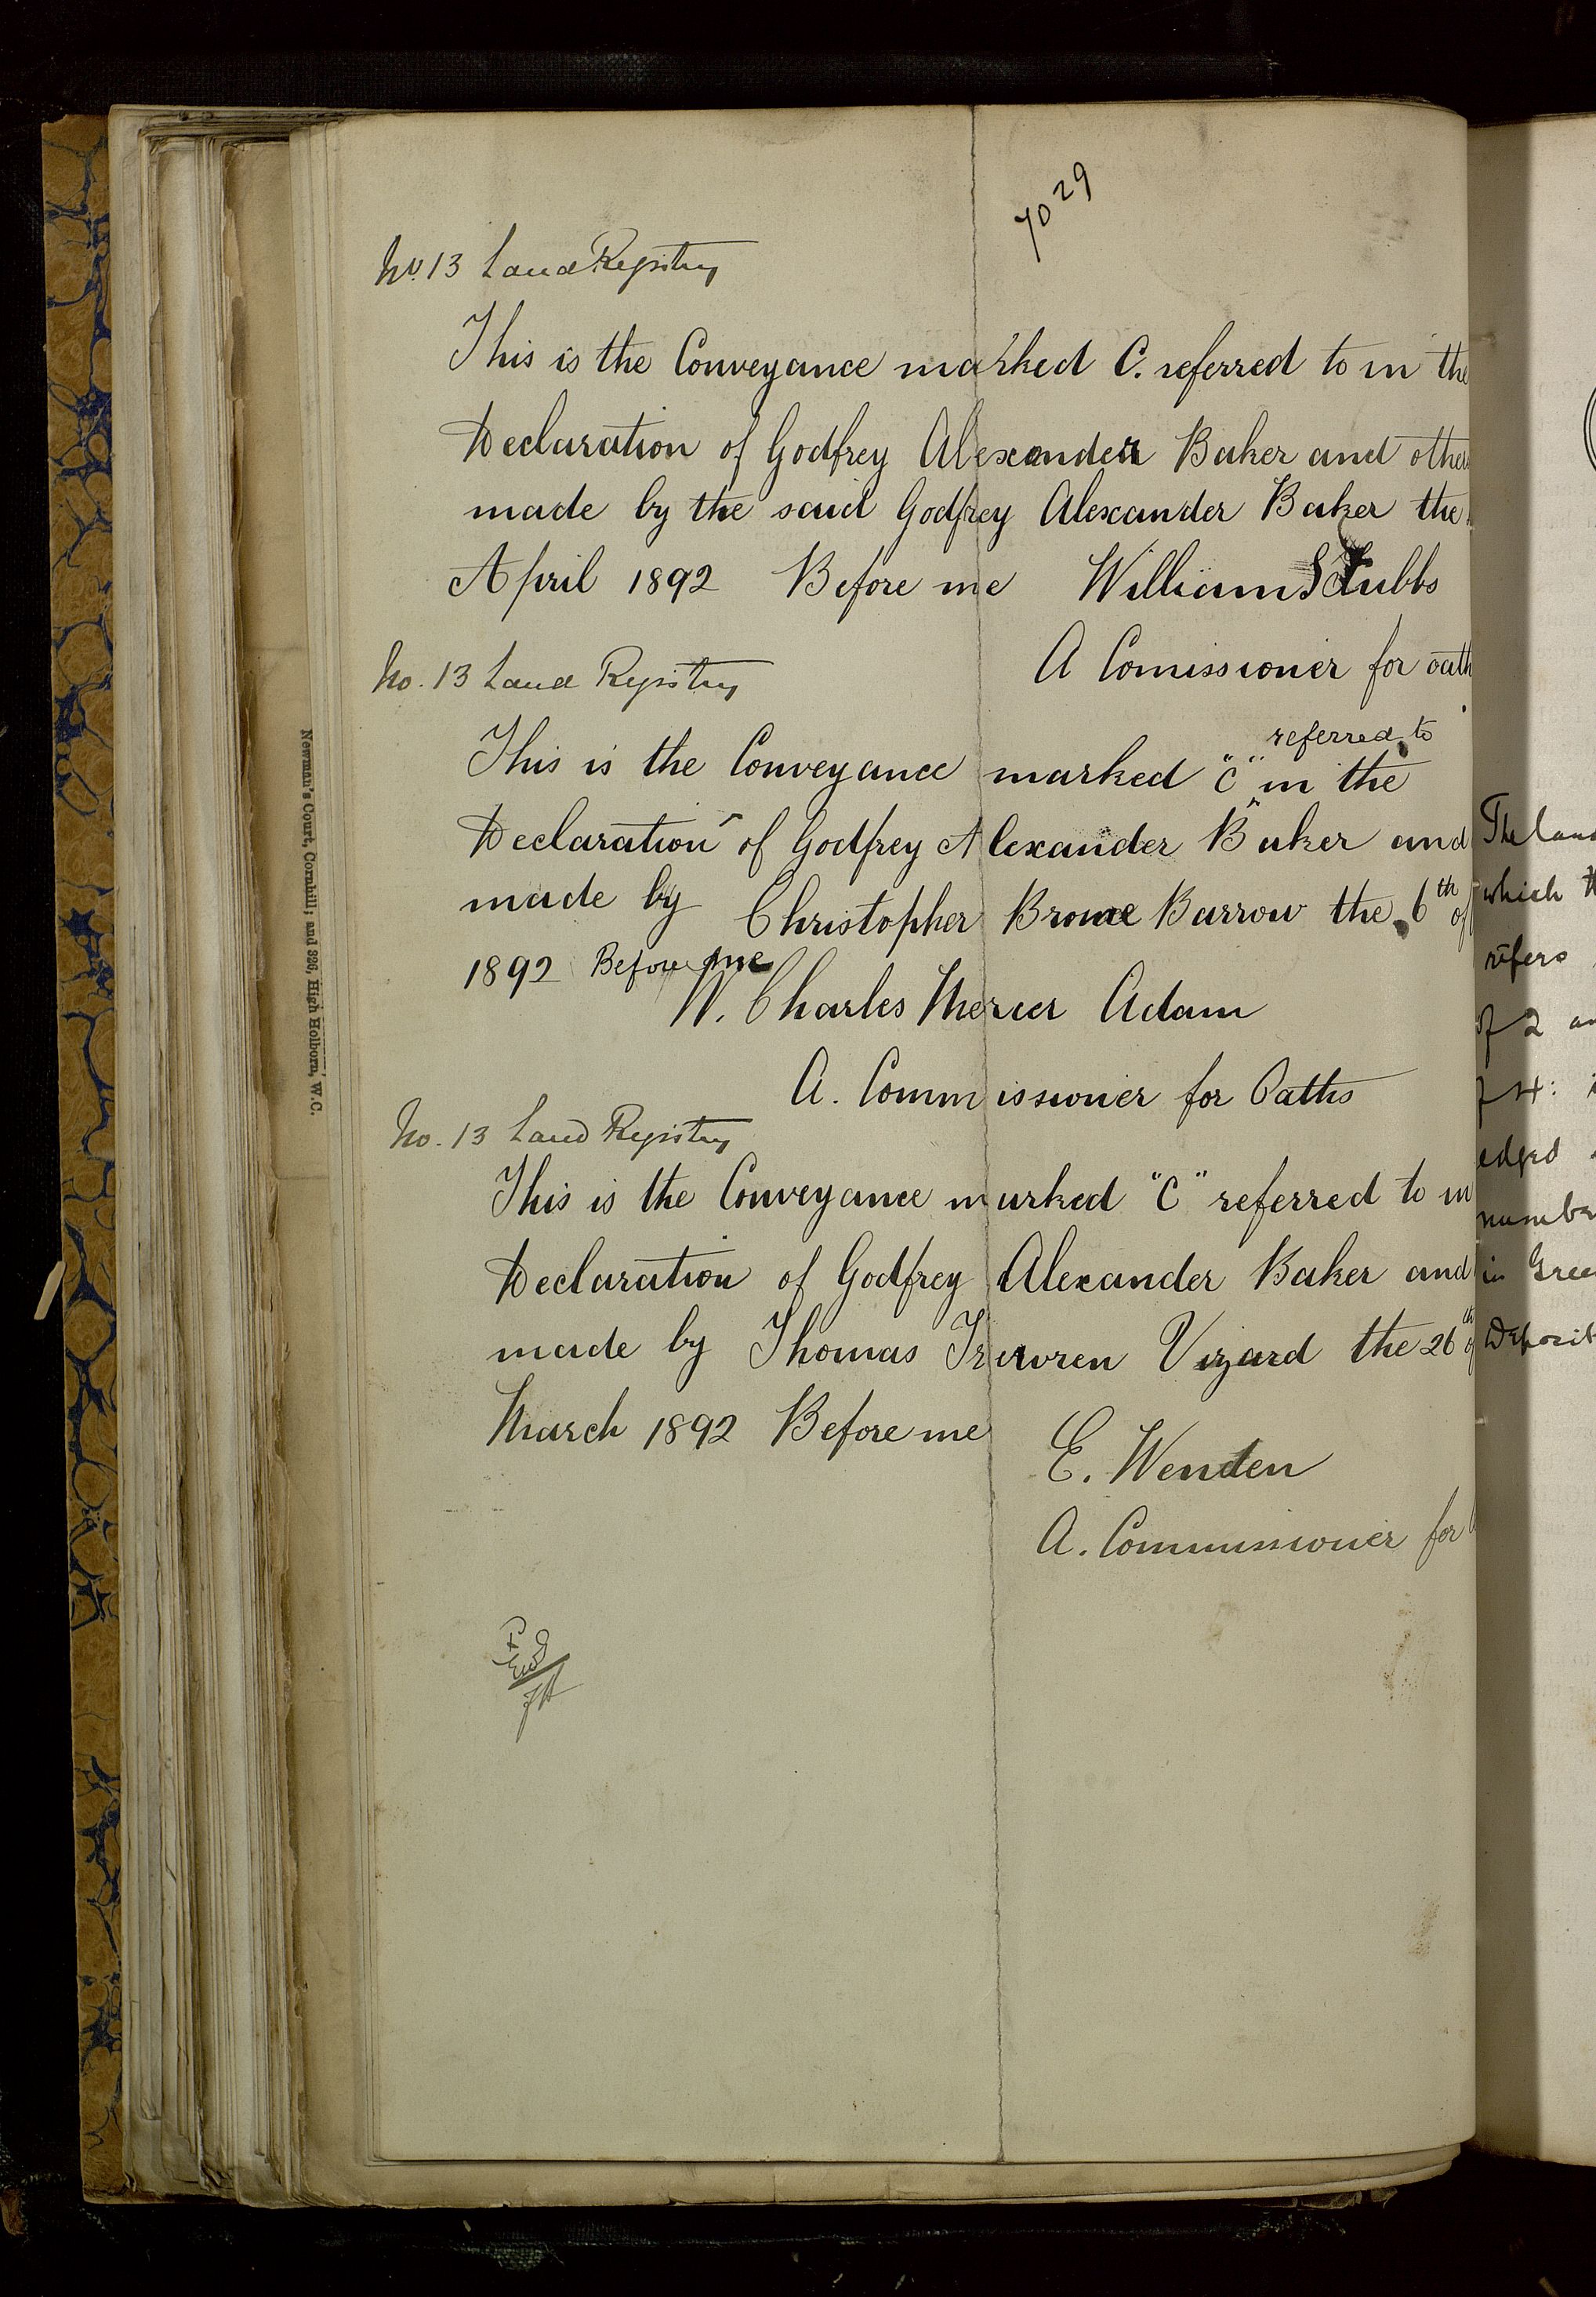 7029
No. 13 Land Registry
This is the Conveyance marked C. referred to in the
Declaration of Godfrey Alexander Baker and other
made by the said Godfrey Alexander Baker the
April 1892 Before me William Stubbs
A Comissioner for oath
No. 13 Land Registry
referred to
This is the Conveyance marked "C" in the
Declaration of Godfrey Alexander Baker and
made by Christopher Brome Barrow the 6th of
1892 Before me
W. Charles Mercer Adam
A. Commissioner for Oaths
No. 13 Land Registry
This is the Conveyance marked "C" referred to in
Declaration of Godfrey Alexander Baker and
made by Thomas Vizard the 26th of
March 1892 Before me
E. Wenden
A. Commissioner for
Newman's Court, Cornhill; and 326, High Holborn, W.C.
The land
which th
refers
of 2 an
edged
number
in Gree
Deposit